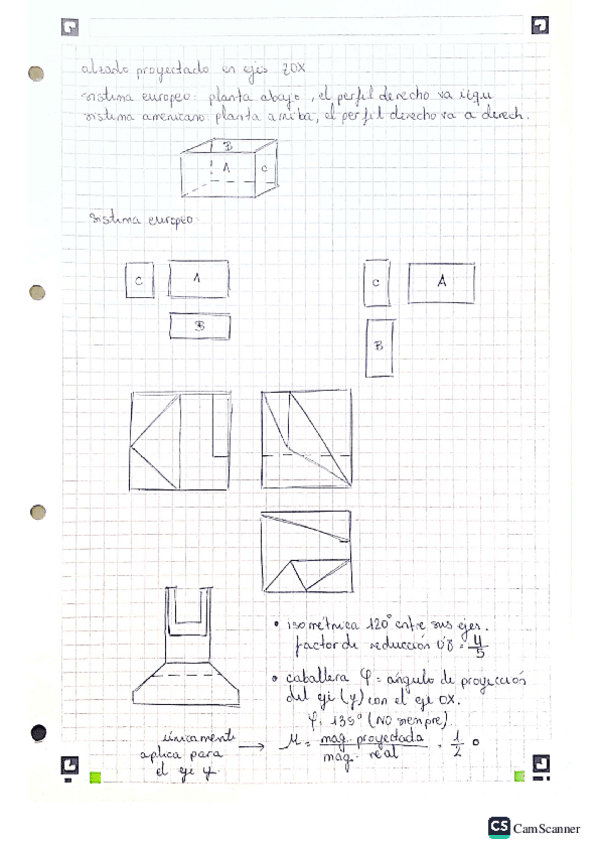 alzado proyectado en ejes ZOX
sistema europeo: planta abajo, el perfil derecho va izqu
sistema americano: planta arriba, el perfil derecho va a derech.
B
A
C
Sistema europeo:
C
A
B
C
A
B
• isométrica 120° entre sus ejes.
factor de reducción 0'8 = 4/5
• caballera φ = ángulo de proyección
del eje (y) con el eje OX.
φ = 135° (NO siempre)
únicamente
aplica para
el eje y.
→ μ = mag. proyectada / mag. real = 1/2
CS CamScanner